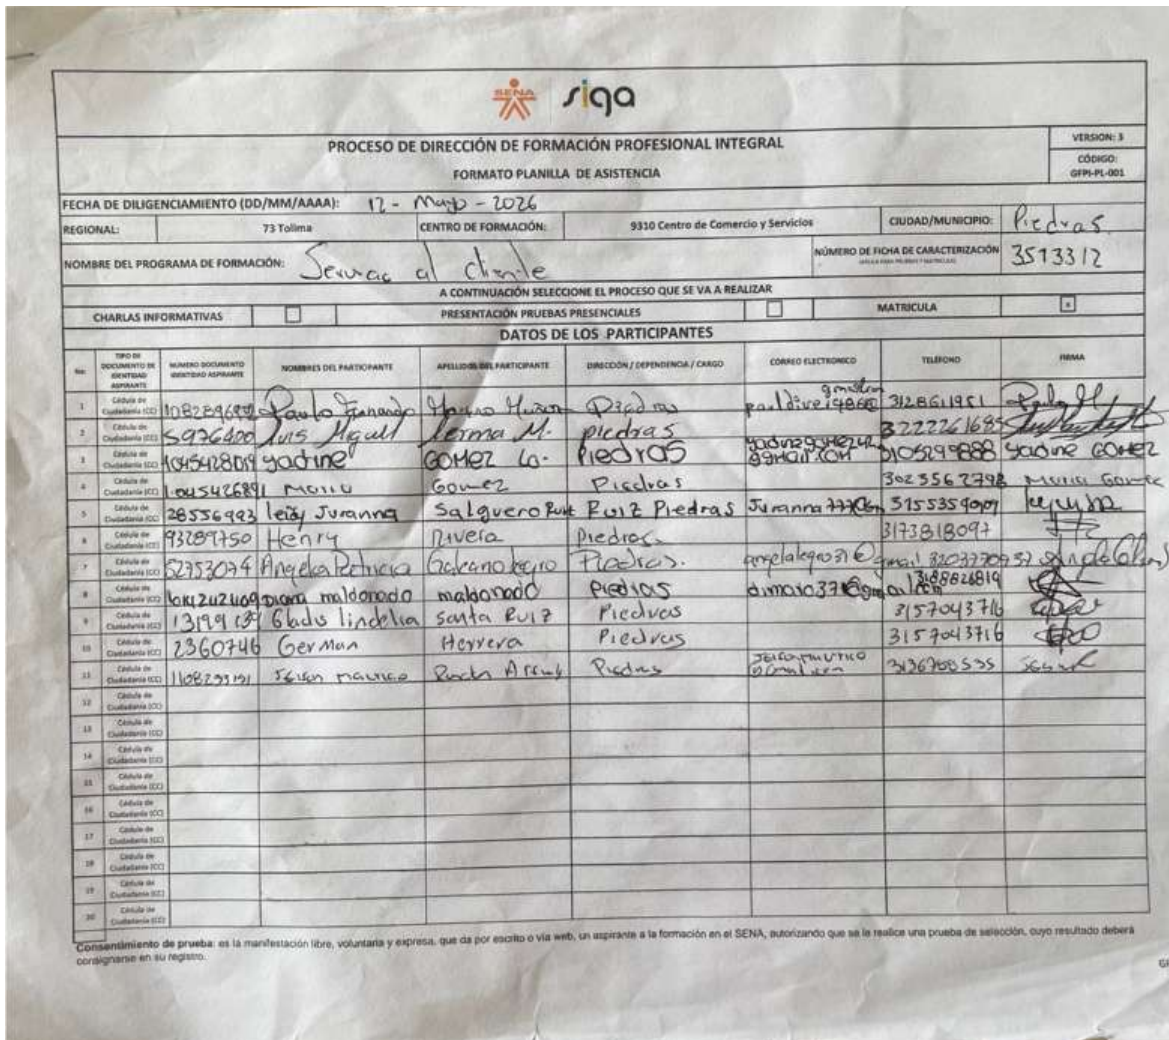 SENA siga
PROCESO DE DIRECCIÓN DE FORMACIÓN PROFESIONAL INTEGRAL
FORMATO PLANILLA DE ASISTENCIA
VERSION: 3
CÓDIGO:
GFPI-PL-001
FECHA DE DILIGENCIAMIENTO (DD/MM/AAAA): 12 - Mayo - 2026
REGIONAL: 73 Tolima CENTRO DE FORMACIÓN: 9310 Centro de Comercio y Servicios CIUDAD/MUNICIPIO: Piedras
NOMBRE DEL PROGRAMA DE FORMACIÓN: al cliente NÚMERO DE FICHA DE CARACTERIZACIÓN 3513312
A CONTINUACIÓN SELECCIONE EL PROCESO QUE SE VA A REALIZAR
CHARLAS INFORMATIVAS PRESENTACIÓN PRUEBAS PRESENCIALES MATRICULA x
DATOS DE LOS PARTICIPANTES
No. TIPO DE DOCUMENTO DE IDENTIDAD ASPIRANTE NUMERO DOCUMENTO IDENTIDAD ASPIRANTE NOMBRES DEL PARTICIPANTE APELLIDOS DEL PARTICIPANTE DIRECCIÓN / DEPENDENCIA / CARGO CORREO ELECTRÓNICO TELEFONO FIRMA
1 Cédula de Ciudadanía (CC) Piedras 3128611951
2 Cédula de Ciudadanía (CC) 5976400 Luis Lerma M. piedras 3222261685
3 Cédula de Ciudadanía (CC) 1045428019 yadine GOMEZ Lo. Piedras 3105299888 yadine GOMEZ
4 Cédula de Ciudadanía (CC) 1045426891 Maria Gomez Piedras 3023562798 Maria Gomez
5 Cédula de Ciudadanía (CC) 28556993 leidy Juranna Salguero Ruiz Ruiz Piedras
6 Cédula de Ciudadanía (CC) 93289750 Henry Rivera Piedras. 3173818097
7 Cédula de Ciudadanía (CC) 52753074 Angelica Patricia Piedras.
8 Cédula de Ciudadanía (CC) Diana maldonado maldonado piedras 3188826819
9 Cédula de Ciudadanía (CC) Gladis lindelia santa Ruiz Piedras 3157043716
10 Cédula de Ciudadanía (CC) 2360746 German Herrera Piedras 3157043716
11 Cédula de Ciudadanía (CC) Piedras 3136708535
12 Cédula de Ciudadanía (CC)
13 Cédula de Ciudadanía (CC)
14 Cédula de Ciudadanía (CC)
15 Cédula de Ciudadanía (CC)
16 Cédula de Ciudadanía (CC)
17 Cédula de Ciudadanía (CC)
18 Cédula de Ciudadanía (CC)
19 Cédula de Ciudadanía (CC)
20 Cédula de Ciudadanía (CC)
Consentimiento de prueba: es la manifestación libre, voluntaria y expresa, que da por escrito o vía web, un aspirante a la formación en el SENA, autorizando que se le realice una prueba de selección, cuyo resultado deberá
consignarse en su registro.